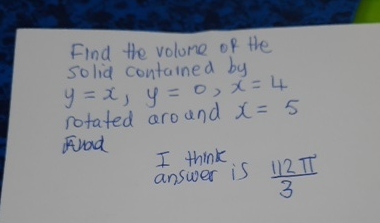 Find the volume of the
solid contained by
y = x, y = 0, x = 4
rotated around x = 5
I think
answer is 112π/3